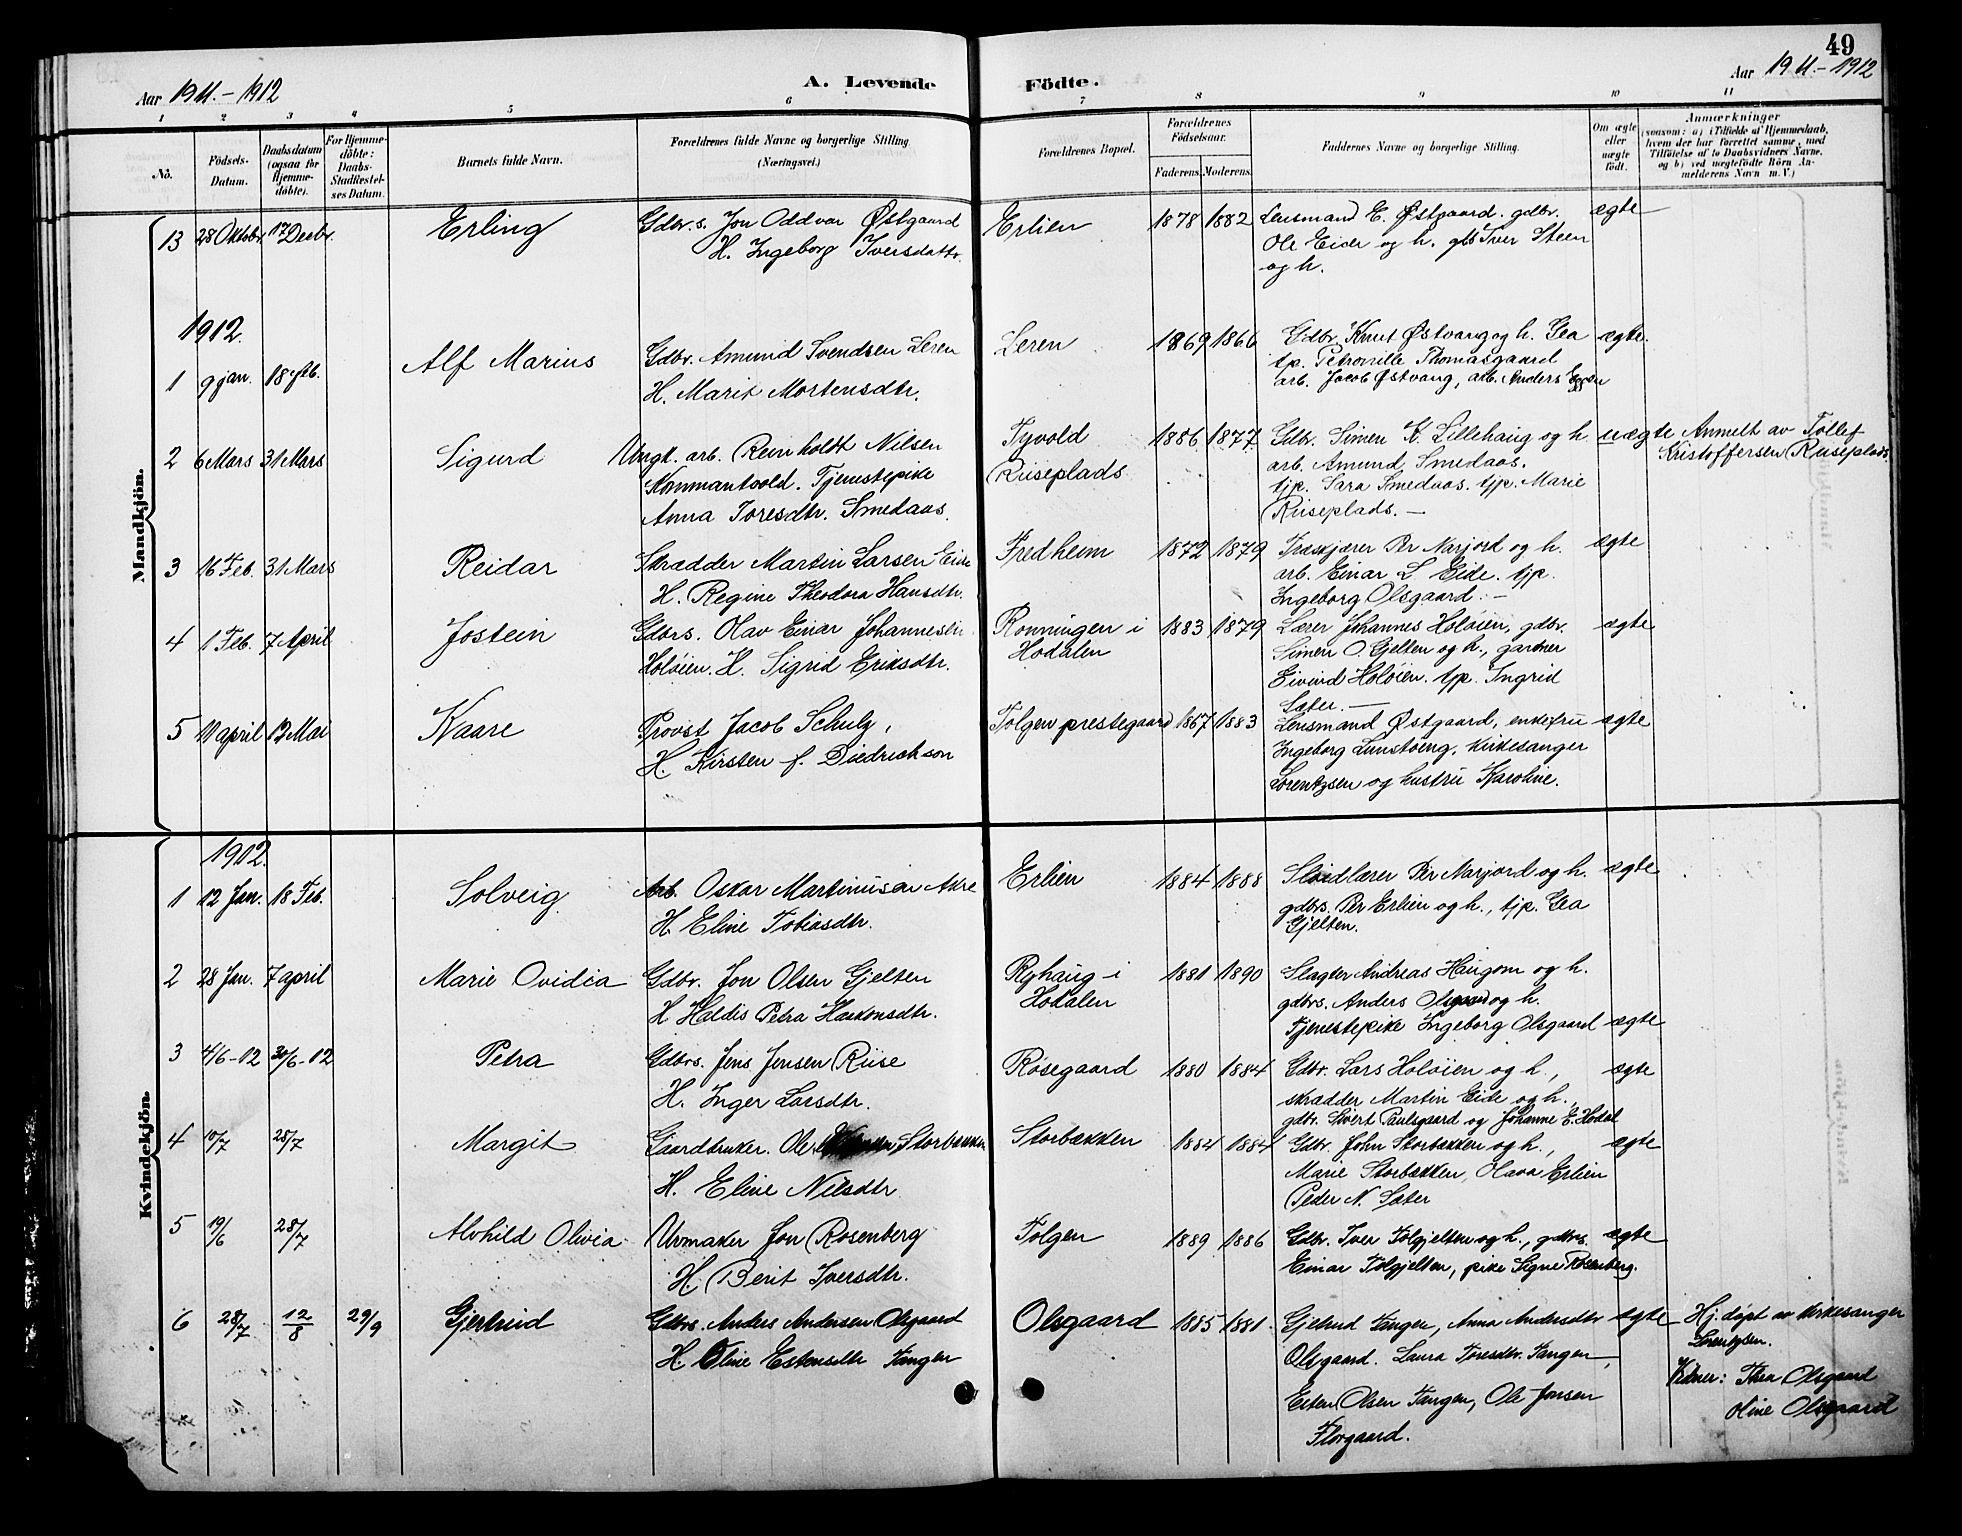 49
Aar 1911.-1912
A. Levende
Födte.
Aar 1911.-1912
1 2 3 4 5 6 7 8 9 10 11
No.
Födsels-
Datum.
Daabsdatum
(ogsaa for
Hjemme-
döbte).
For Hjemme-
döbte:
Daabs-
Stadfæstel-
ses Datum.
Barnets fulde Navn.
Forældrenes fulde Navne og borgerlige Stilling
(Næringsvei.)
Forældrenes Bopæl.
Forældrenes
Födselsaar.
Faderens. Moderens.
Faddernes Navne og borgerlige Stilling.
Om ægte
eller
uægte
födt.
Anmærkninger
(saasom: a) i Tilfælde af Hjemmedaab,
hvem der har forrettet samme, med
Tilföielse af to Daabsvidners Navne,
og b) ved uægtefödte Börn An-
melderens Navn m. V.)
Mandkjön.
13 28 Oktobr. 17 Decbr. Erling
Gdbr. s. Jon Oddvar Østgaard
H. Ingeborg Iversdattr.
Erlien 1878 1882
Lensmand E. Østgaard. gdbr.
Ole Eide og h. gbs Iver Steen
og h.
ægte
1912.
1 9 jan. 18 feb. Alf Marius
Gdbr. Amund Svendsen Leren
H. Marit Mortensdtr.
Leren 1869 1866
Gdbr. Knut Østvang og h. Gea
tp. Petronille Thomasgaard
arb. Jacob Østvang, arb. Anders Eggen
ægte.
2 6 Mars 31 Mars Sigurd
Ungk. arb. Reinholdt Nilsen
Kommantvold. Tjenestepike
Anna Toresdtr. Smedaas.
Tyvold
Riiseplads
1886 1877
Gdbr. Simen K. Lillehaug og h
arb. Amund Smedaas.
tjp. Sara Smedaas. tjp. Marie
Riiseplads. —
uægte
Anmelt av Tollef
Kristoffersen Riiseplads.
3 16 Feb. 31 Mars Reidar
Skrædder Martin Larsen Eide
H. Regine Theodora Hansdtr.
Fredheim 1872 1879
Træskjærer Per Narjord og h.
arb. Einar L. Eide. tjp.
Ingeborg Olsgaard. —
ægte
4 1 Feb. 7 April Jostein
Gdbrs. Olav Einar Johannesen
Holøien. H. Sigrid Eriksdtr.
Rønningen i
Hodalen
1883 1879
Lærer Johannes Holøien, gdbr.
Simen O. Gjelten og h., gartner
Eivind Holøien. tjp. Ingrid
Sæter. —
ægte
5 11 april 12 Mai Kaare
Provst Jacob Schulz,
H. Kirsten f. Diedrichson
Tolgen prestegaard 1867 1883
Lensmand Østgaard, enkefru
Ingeborg Lunstoeng, kirkesanger
Lorentzsen og hustru Karoline.
ægte
Kvindekjön.
1912.
1 12 Jan. 18 Feb. Solveig
Arb. Oskar Martinusen Akre
H. Eline Tobiasdtr.
Erlien 1884 1888
Sløidlærer Per Narjord og h.
gdbrs. Per Erlien og h., tjp. Gea
Gjelten.
ægte
2 28 Jan. 7 april Marie Ovidia
Gdbr. Jon Olsen Gjelten
H. Haldis Petra Haakonsdtr.
Ryhaug i
Hodalen
1881 1890
Slagter Andreas Haugom og h.
gdbrs. Anders Olsgaard og h.
Tjenestepike Ingeborg Olsgaard
ægte
3 4/6-12 30/6-12 Petra
Gdbrs. Jens Jensen Riise
H. Inger Larsdtr.
Rosegaard 1880 1884
Gdbr. Lars Holøien og h.,
skrædder Martin Eide og h.,
gdbr. Sivert Paulsgaard og Johanne E. Hodal
ægte
4 10/7 28/7 Margit
Gaardbruker. Ole Storbækken
H. Eline Nilsdtr
Storbækken 1884 1884
Gdbr. John Storbækken og h.,
Marie Storbækken, Olava Erlien
Peder N. Sæter
ægte
5 19/6 28/7 Alvhild Olivia
Urmaker Jon Rosenberg
H. Berit Iversdtr.
Tolgen 1889 1886
Gdbr. Iver Tolgjelten og h., gdbrs.
Einar Tolgjelten, pike Signe Rosenberg.
ægte
6 28/7 12/8 29/9 Gjertrud
Gdbrs. Anders Andersen Olsgaard
H. Oline Estensdtr Tangen
Olsgaard 1885 1881
Gjetrud Tangen, Anna Andersdtr
Olsgaard. Laura Toresdtr. Tangen,
Esten Olsen Tangen, Ole Jonsen
Florgaard.
ægte
Hj. døpt av kirkesanger
Lorentzsen.
Vidner: Thea Olsgaard
Oline Olsgaard